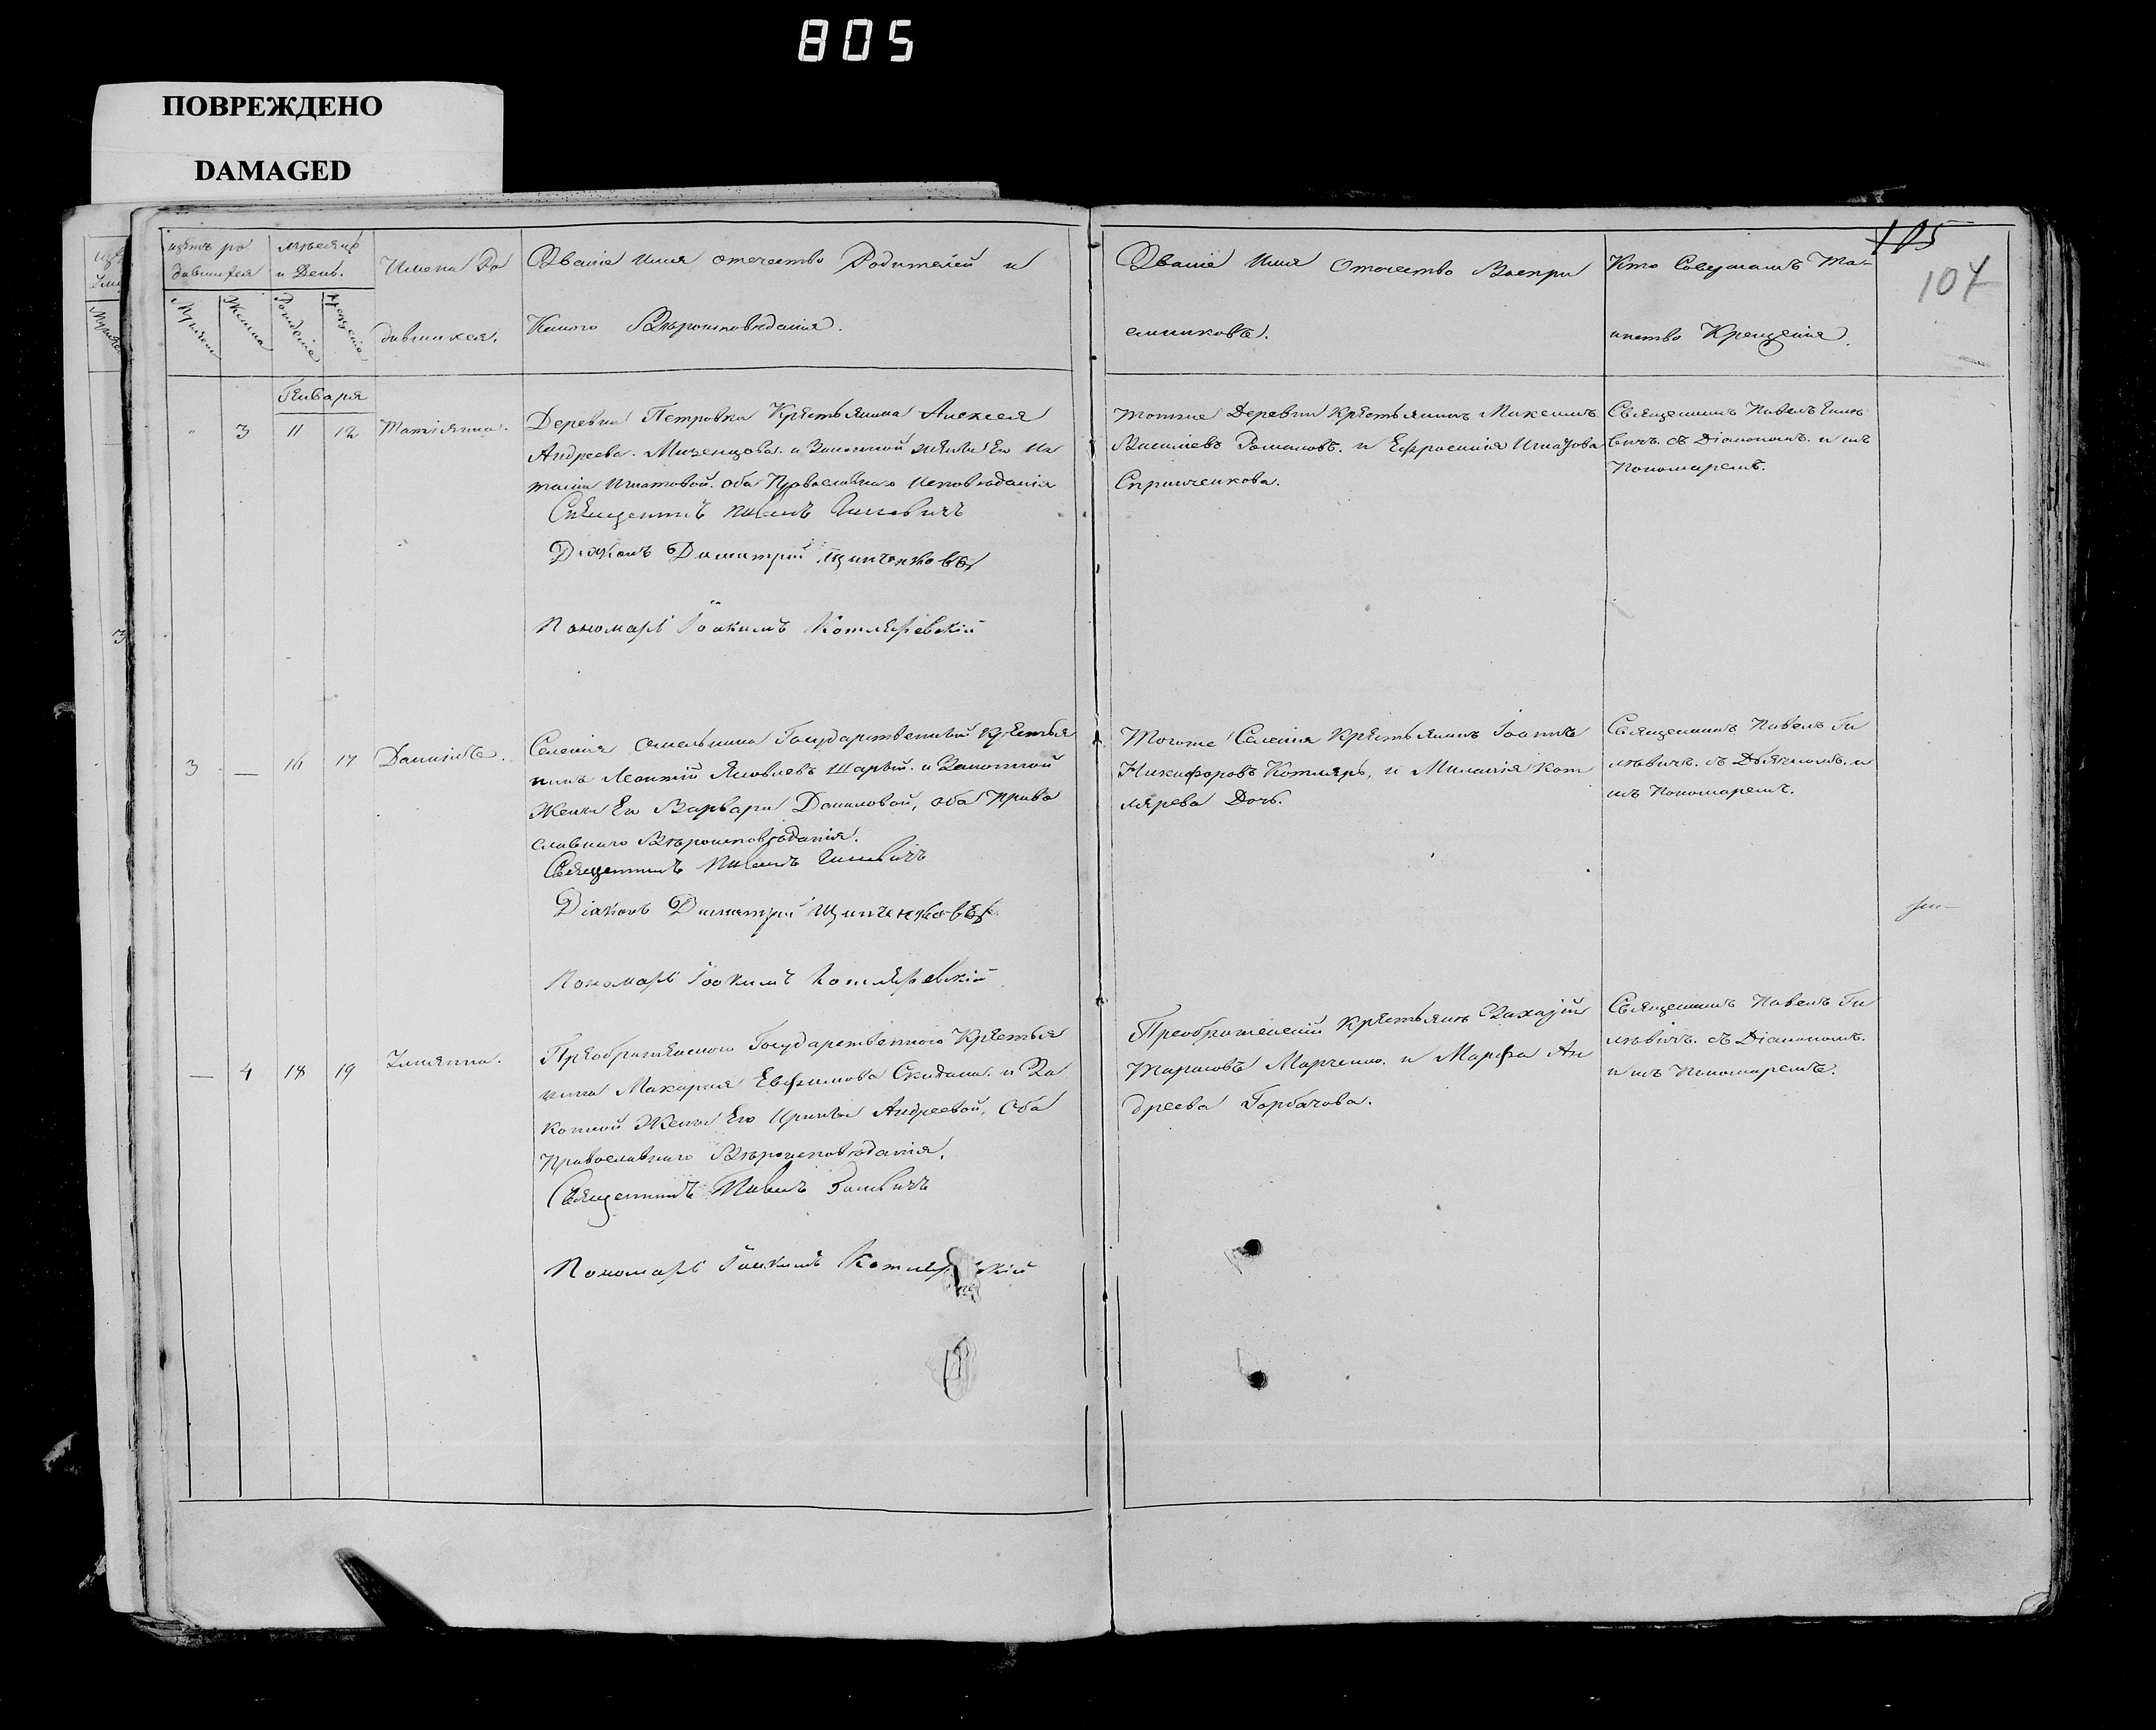 805
ПОВРЕЖДЕНО
DAMAGED
105
107
щетъ ро
дившихся
мѣсяцъ
и День.
Имена Ро
дившихся.
Званіе Имя отечество Родителей и
Какого Вѣроисповѣданія.
Званіе Имя Отечество Воспри
емниковъ.
Кто Совершалъ Та-
инство Крещенія.
Женска
Рожденіе
Крещеніе
Генваря
3 11 12 Татіянна.
Деревни Петровки Крестьянина Алексея
Андреева. и Законной жены Его На
таліи Игнатовой. оба Православнаго Исповѣданія
Священникъ Павелъ
Діяконъ Димитрій
Пономарь Іоакимъ Котляревскій
тоиже Деревни Крестьянинъ
Василіевъ Романовъ. и Ефросинія
Священникъ Павелъ
съ Діакономъ. и съ
Пономаремъ.
3 — 16 17 Даніилъ.
Селенія Государственный Крестья
нинъ Леонтій Яковлевъ и Законной
Жены Его Варвары Даниловой, оба Право
славнаго Вѣроисповѣданія.
Священникъ Павелъ
Діаконъ Димитрій
Пономарь Іоакимъ Котляревскій
Тогоже Селенія Крестьянинъ Іоаннъ
Никифоровъ Котляръ, и Меланія Кот
лярева Дочь.
Священникъ Павелъ Ги
левичъ. съ Діякономъ. и
съ Пономаремъ.
— 4 18 19
Преображенского Государственного Крестья
нина Макария Евфимова Скидана. и За
конной Жены Его Ирины Андреевой, Оба
Православнаго Вѣроисповѣданія.
Священникъ Павелъ
Пономарь Іоакимъ
Преображенскій Крестьянъ Захарій
Тарасовъ Марченко. и Марфа Ан
дреева Горбачова.
Священникъ Павелъ Ги
левичъ. съ Діакономъ.
и съ Пономаремъ.